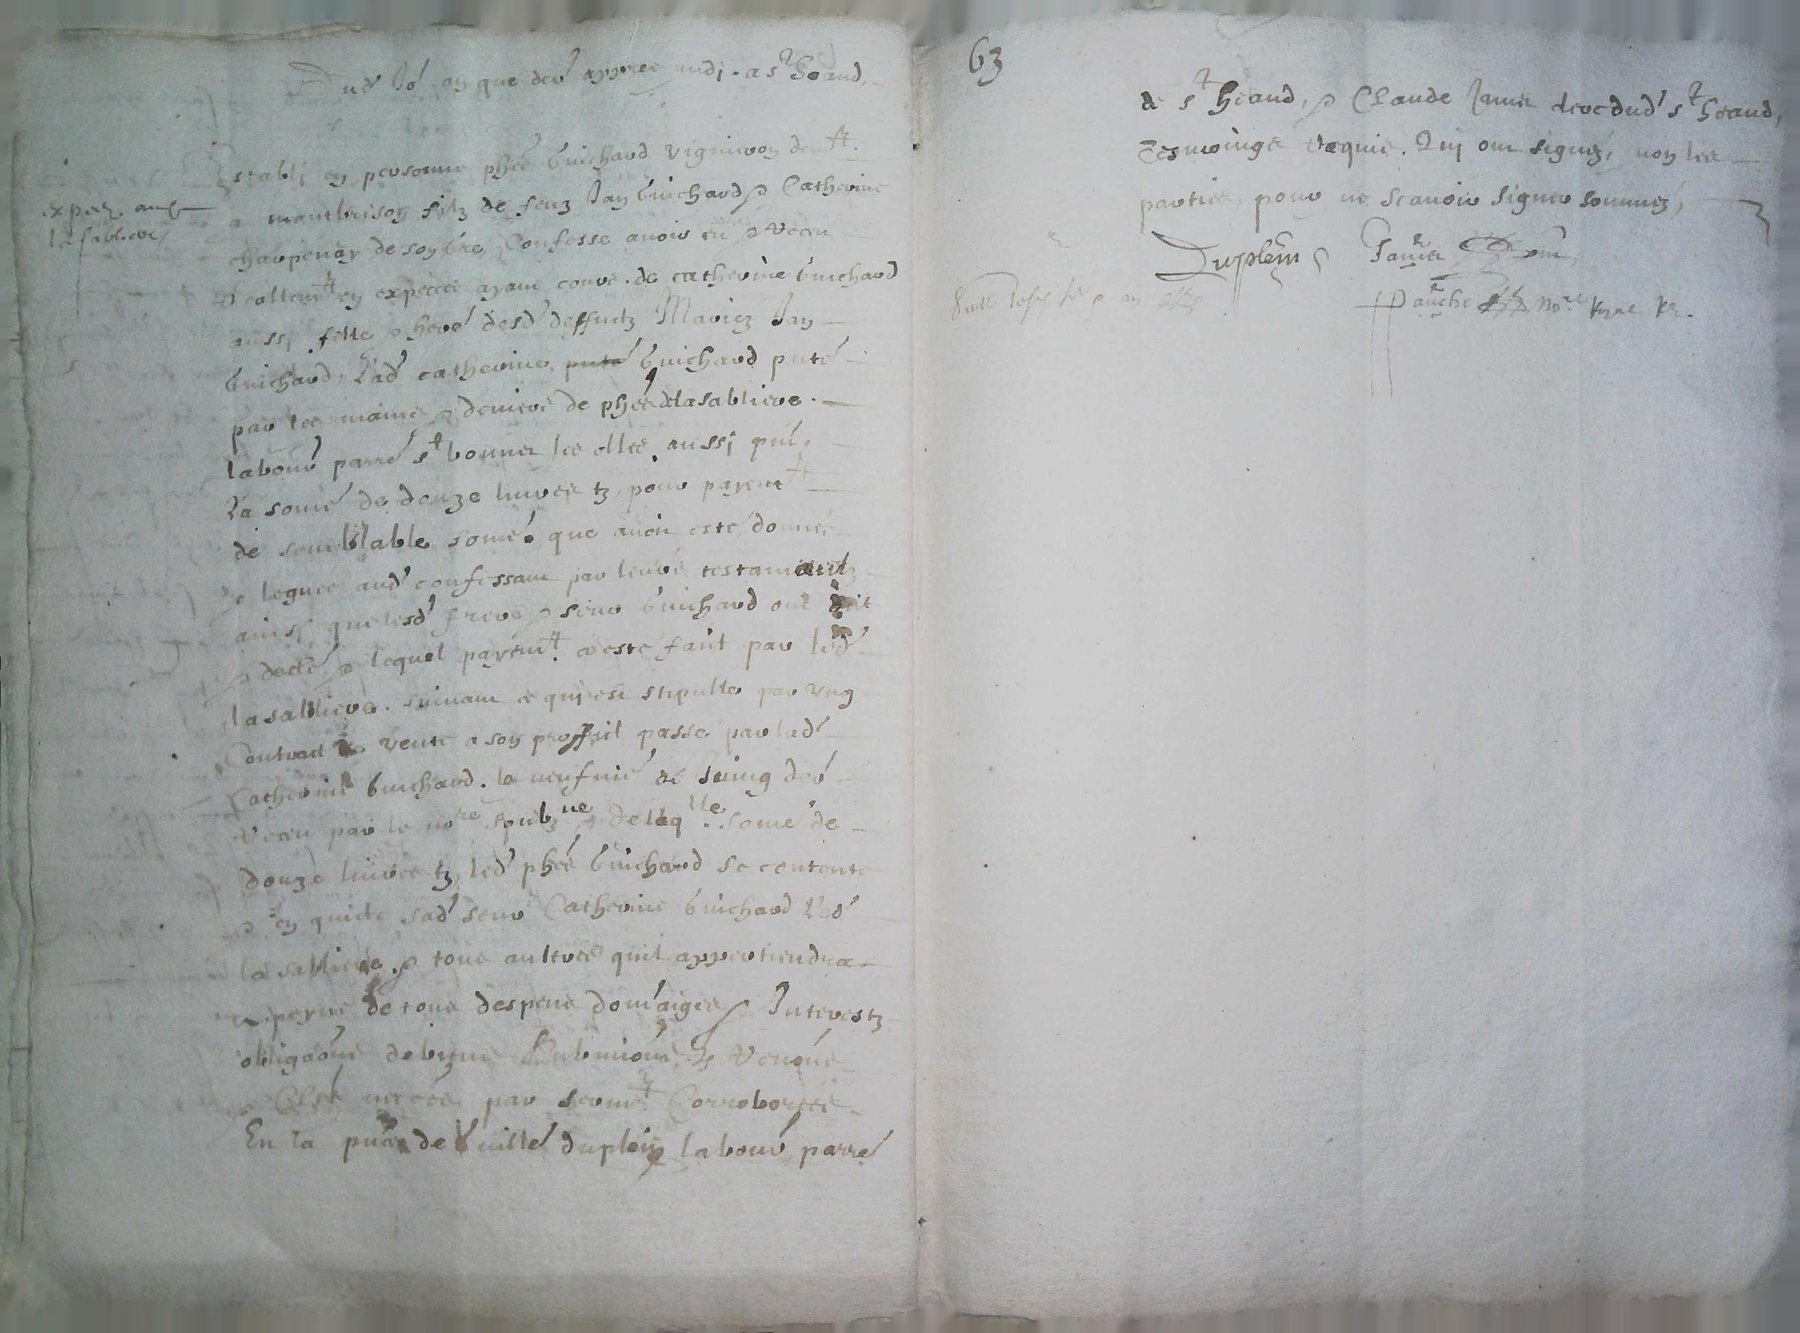 Dud Jo' an que des' appres midi. a st heand,
Establi en personne phés Guichard vigniron demt.
a montbrison filz de feuz Jan Guichard & Catherine
charpenay de son ... Confesse avoir eu & receu
realemt en expeces ayant cours. de catherine Guichard
aussi fille & here' desd' deffuntz Mariez Jan
Guichard, Lad' catherine Guichard pnte'
par les mains & deniers de phés delasabliere.
labour' parre' st bonnet les olles, aussi pnt,
La some' de douze livres tz, pour payemt
de semblable some' que avoit este donné
& legues aud' confessant par leurs testamentz
ainsi que lesd' frere & seur Guichard ont dit
& declé, & lequel payemt. a este fait par led'
lasabliere. suivant ce qui est stipulle par ung
Contract de vente a son proffit passe par lad'
Catherine Guichard. le neufvie' de Juing der'
receu par le nore soubzne & de laqlle. some' de
douze livres tz led' phés Guichard se contente
& en quicte sad' seur Catherine Guichard Led'
lasabliere, & tous aultres quil appertiendra
a peyne de tous despens domaiges & Interestz
obligaons de biens Submions, & renons
par sermt Corroborées
En la pnce de Guille' duplein labour' parre'
expedz aud
lasabliere
63
de st heand, & Claude Janier clerc dud' st heand,
Tesmoings requis. Qui ont signés, non les
parties, pour ne scavoir signer sommés,
Duplein Janier
Panche nore Royal Rt.